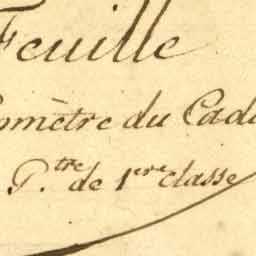 Feuille
omètre du Cad
P.tre de 1ere classe